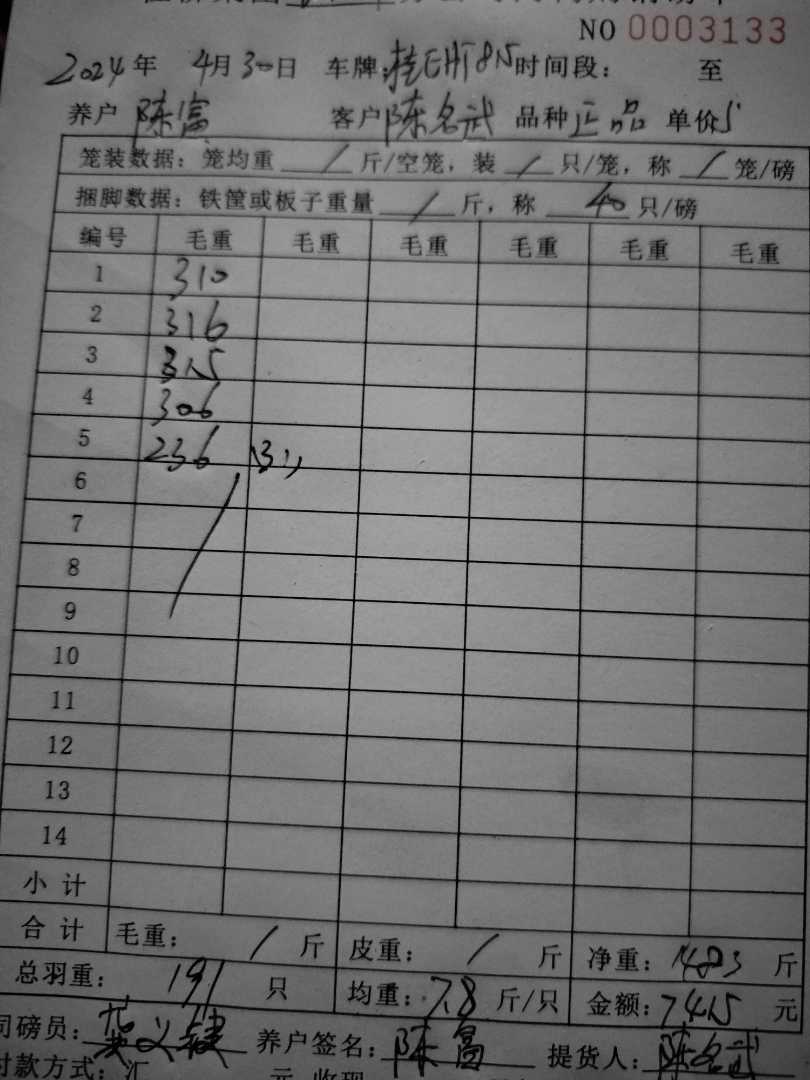 NO 0003133
2024年 4月30日 车牌:桂EHT85时间段: 至
养户 陈富 客户 陈名武 品种 正品 单价5
笼装数据:笼均重 / 斤/空笼,装 / 只/笼,称 / 笼/磅
捆脚数据:铁筐或板子重量 / 斤,称 40 只/磅
编号 毛重 毛重 毛重 毛重 毛重 毛重
1 310
2 316
3 315
4 306
5 236 (31)
6
7
8
9
10
11
12
13
14
小计
合计 毛重: / 斤 皮重: / 斤 净重:1483 斤
总羽重: 191 只 均重:7.8 斤/只 金额:7415 元
司磅员: 养户签名:陈富 提货人:陈名武
付款方式:汇